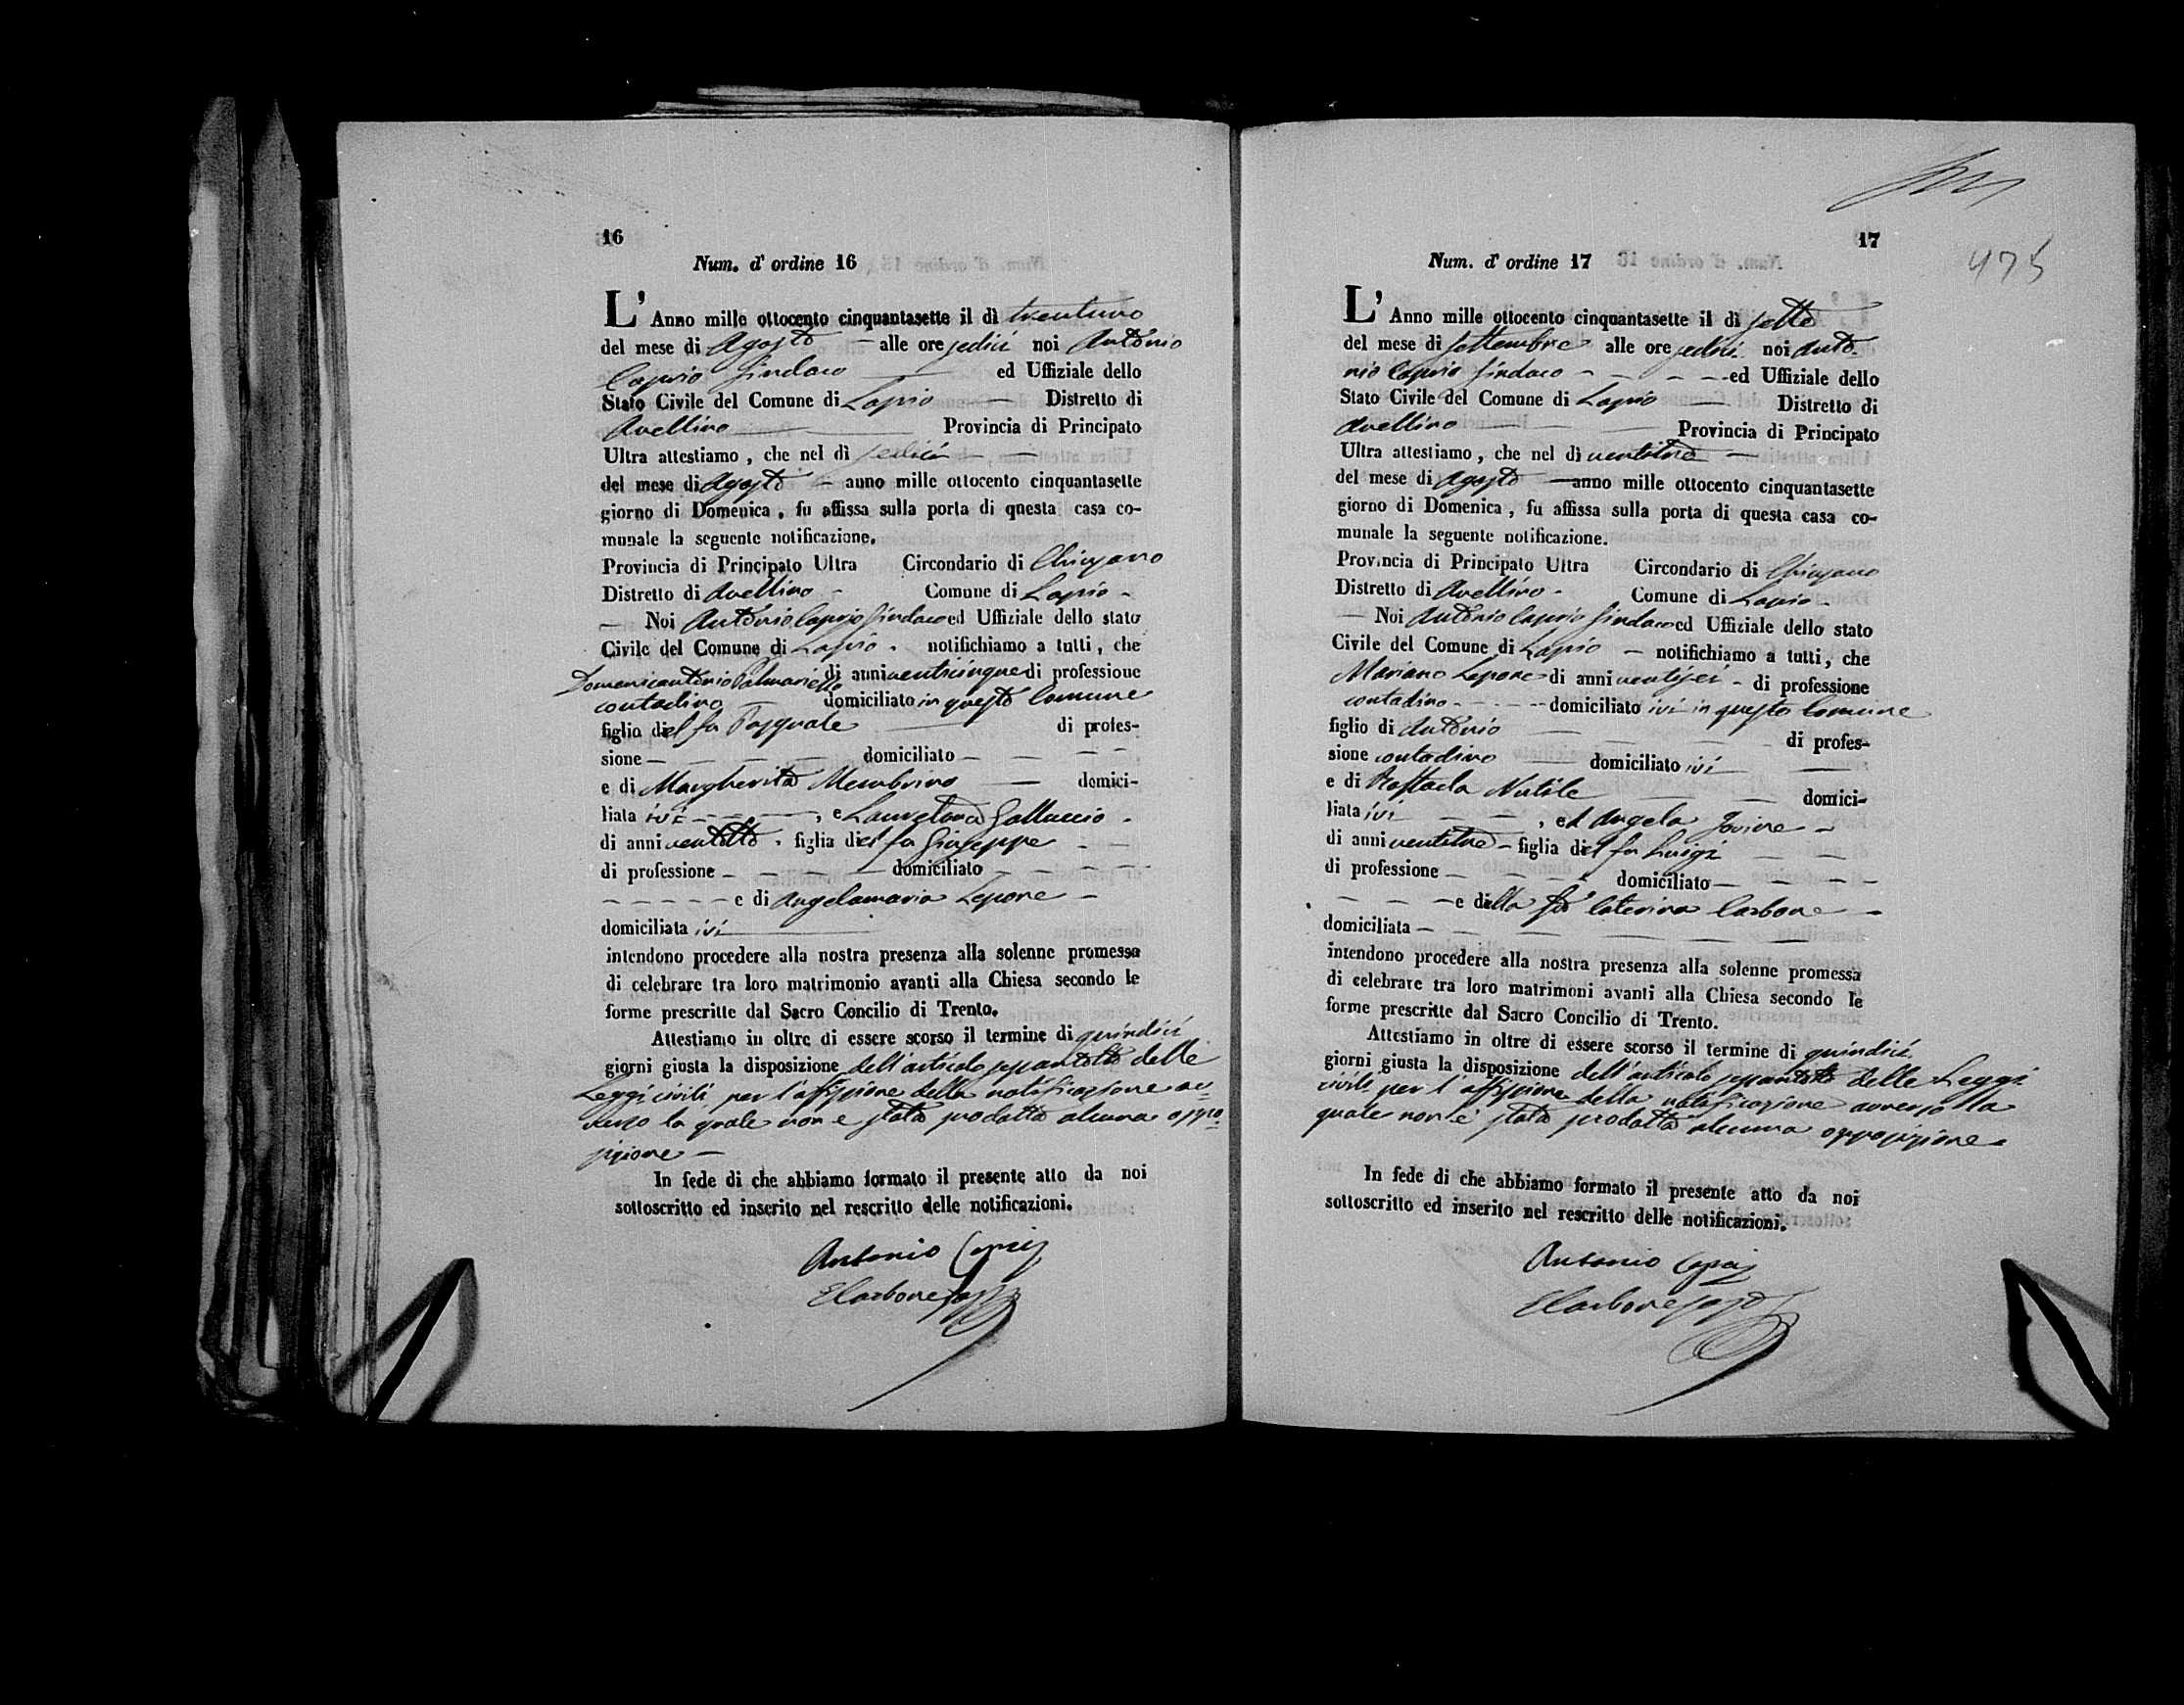 16
Num. d' ordine 16
L' Anno mille ottocento cinquantasette il dì trentuno
del mese di Agosto — alle ore sedici noi Antonio
Caprio Sindaco — ed Uffiziale dello
Stato Civile del Comune di Lapio — Distretto di
Avellino — Provincia di Principato
Ultra attestiamo, che nel dì sedici — —
del mese di Agosto — anno mille ottocento cinquantasette
giorno di Domenica, fu affissa sulla porta di questa casa co-
munale la seguente notificazione.
Provincia di Principato Ultra Circondario di Chiusano
Distretto di Avellino - Comune di Lapio -
— Noi Antonio Caprio Sindaco ed Uffiziale dello stato
Civile del Comune di Lapio - notifichiamo a tutti, che
Domenicantonio Palmariello di anni venticinque di professione
contadino — domiciliato in questo Comune
figlio del fu Pasquale — di profes-
sione — — — — domiciliato — — — —
e di Margherita Membrino — domici-
liata ivi — — — , e Lauretana Galluccio -
di anni ventotto - figlia del fu Giuseppe - —
di professione — — — — domiciliato — — — —
— — — — — e di Angelamaria Lepore —
domiciliata ivi —
intendono procedere alla nostra presenza alla solenne promessa
di celebrare tra loro matrimonio avanti alla Chiesa secondo le
forme prescritte dal Sacro Concilio di Trento.
Attestiamo in oltre di essere scorso il termine di quindici
giorni giusta la disposizione dell'articolo sessantotto delle
Leggi civili per l'affissione della notificazione av=
verso la quale non e stata prodotta alcuna oppo=
sizione —
In fede di che abbiamo formato il presente atto da noi
sottoscritto ed inserito nel rescritto delle notificazioni.
Antonio Caprio
E Carbone
17
475
Num. d' ordine 17
L' Anno mille ottocento cinquantasette il dì sette
del mese di Settembre alle ore sedici noi Anto-
nio Caprio Sindaco - — - — ed Uffiziale dello
Stato Civile del Comune di Lapio — Distretto di
Avellino — — Provincia di Principato
Ultra attestiamo, che nel dì ventitre —
del mese di Agosto — anno mille ottocento cinquantasette
giorno di Domenica, fu affissa sulla porta di questa casa co-
munale la seguente notificazione.
Provincia di Principato Ultra Circondario di Chiusano
Distretto di Avellino - Comune di Lapio -
— Noi Antonio Caprio Sindaco ed Uffiziale dello stato
Civile del Comune di Lapio — notifichiamo a tutti, che
Mariano Lepore di anni ventisei - di professione
contadino - - - - domiciliato ivi in questo Comune
figlio di Antonio — — — di profes-
sione contadino — domiciliato ivi —
e di Raffaela Nutile — — domici-
liata ivi — — , ed Angela Iovine —
di anni ventitre - figlia del fu Luigi — —
di professione — — — — domiciliato — — — —
— — — e della fu Caterina Carbone —
domiciliata — — — — — —
intendono procedere alla nostra presenza alla solenne promessa
di celebrare tra loro matrimoni avanti alla Chiesa secondo le
forme prescritte dal Sacro Concilio di Trento.
Attestiamo in oltre di essere scorso il termine di quindici
giorni giusta la disposizione dell'articolo sessantotto delle Leggi
civili per l'affissione della notificazione avverso la
quale non è stata prodotta alcuna opposizione -
In fede di che abbiamo formato il presente atto da noi
sottoscritto ed inserito nel rescritto delle notificazioni.
Antonio Caprio
E Carbone